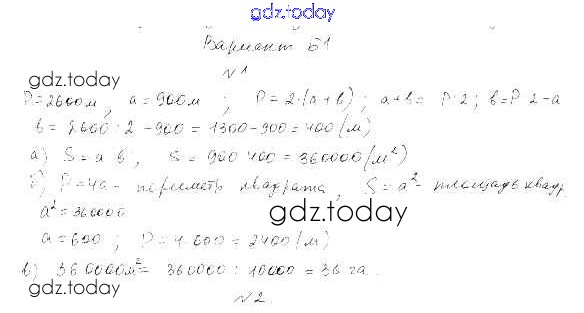 gdz.today
Вариант Б1
№1
gdz.today
P=2600м, a=900м ; P=2·(a+в) ; a+в= P:2 ; в=P 2-a
в = 2600 : 2 -900 = 1300-900 = 400 (м)
а) S = a в ; S = 900 400 = 360000 (м²)
б) P=4a - периметр квадрата, S = a² - площадь квадр
a² = 360000
gdz.today
a = 600 ; P = 4·600 = 2400 (м)
в) 360000м² = 360000 : 10000 = 36 га.
gdz.today
№2.